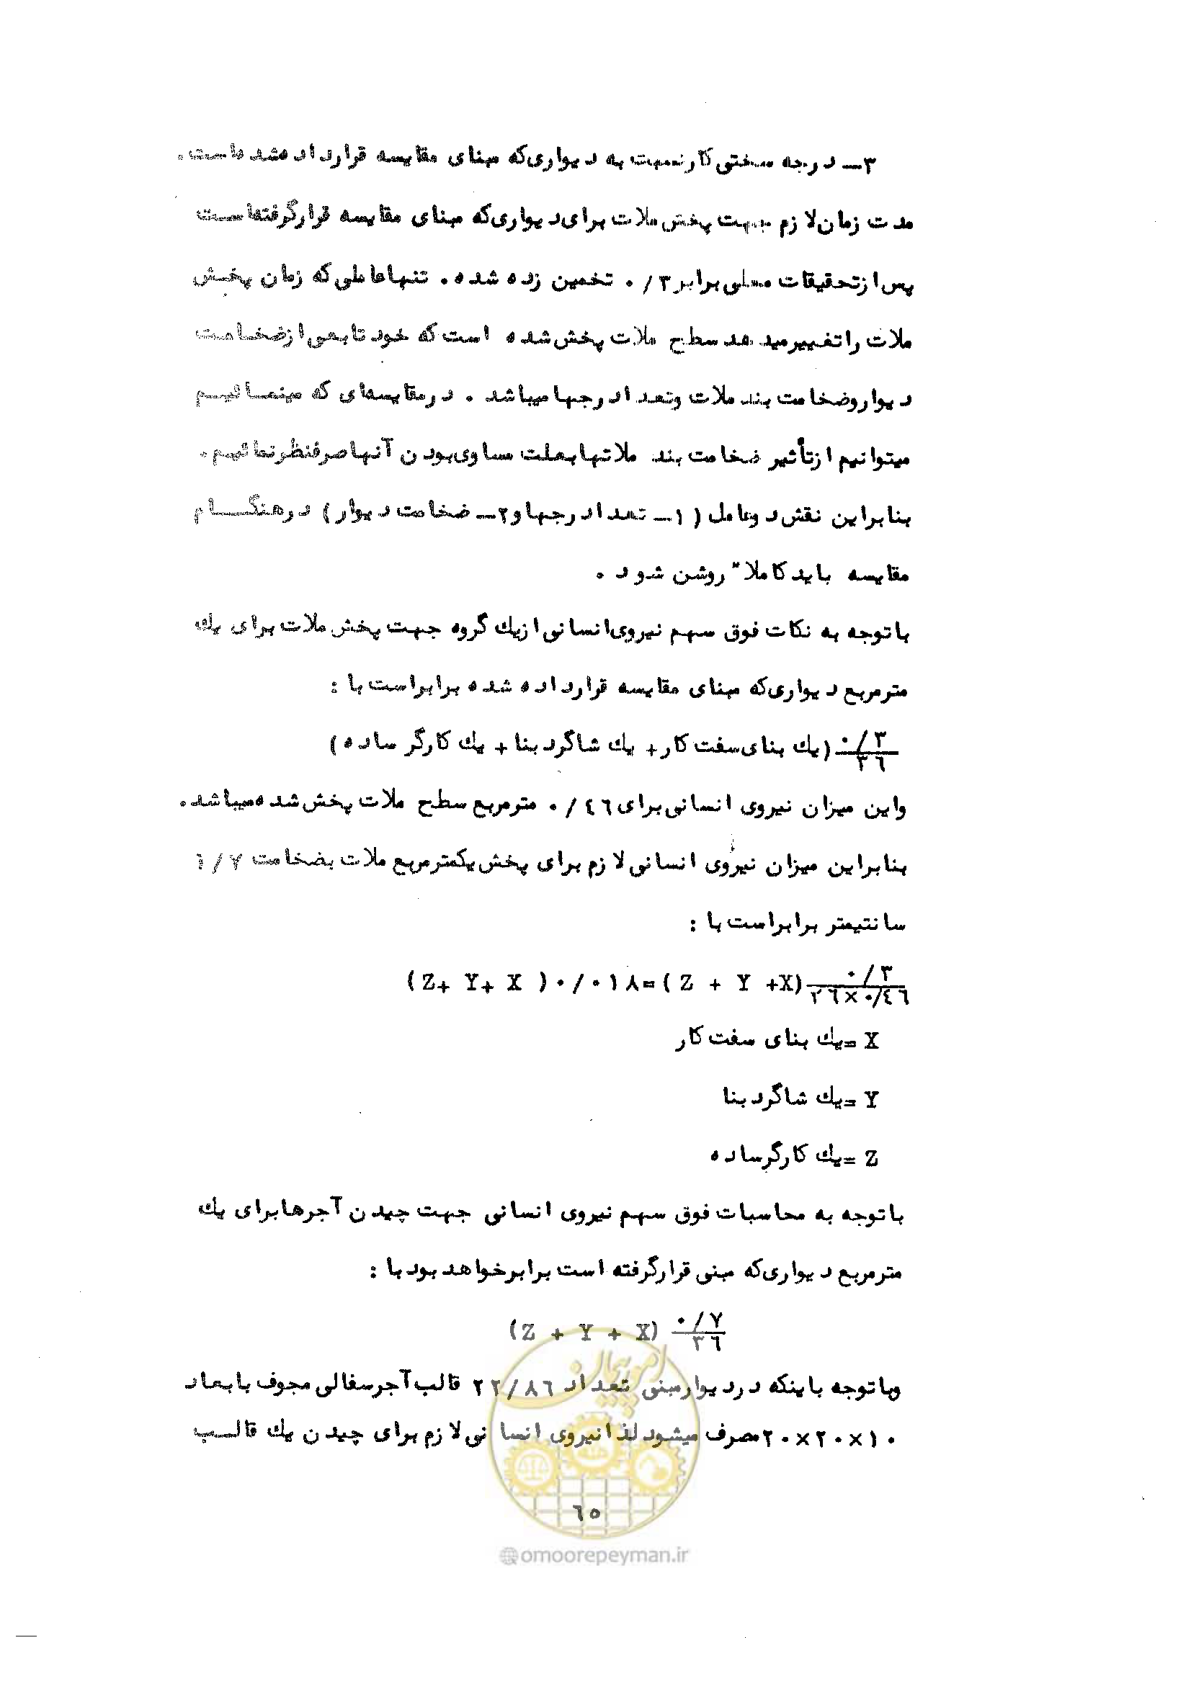 ۳ـ درجه سختی کار نسبت به دیواری که مبنای مقایسه قرار داده شده است.
مدت زمان لازم جهت پخش ملات برای دیواری که مبنای مقایسه قرار گرفته است
پس از تحقیقات محلی برابر ۰/۳ تخمین زده شده. تنها عاملی که زمان پخش
ملات را تغییر میدهد سطح ملات پخش شده است که خود تابعی از ضخامت
دیوار و ضخامت بند ملات و تعداد رجها میباشد. در مقایسه‌ای که مینمائیم
میتوانیم از تأثیر ضخامت بند ملاتها بعلت مساوی بودن آنها صرفنظر نمائیم.
بنابراین نقش دو عامل (۱ـ تعداد رجها و ۲ـ ضخامت دیوار) در هنگام
مقایسه باید کاملا" روشن شود.
با توجه به نکات فوق سهم نیروی انسانی از یك گروه جهت پخش ملات برای یك
مترمربع دیواری که مبنای مقایسه قرار داده شده برابر است با:
۰/۳ / ۳۶ (یك بنای سفت کار + یك شاگرد بنا + یك کارگر ساده)
و این میزان نیروی انسانی برای ۰/۴۶ مترمربع سطح ملات پخش شده میباشد.
بنابراین میزان نیروی انسانی لازم برای پخش یکمترمربع ملات بضخامت ۱/۷
سانتیمتر برابر است با:
(Z+ Y+ X )۰/۰۱۸=( Z + Y +X) ۰/۳ / ۳۶×۰/۴۶
X =یك بنای سفت کار
Y =یك شاگرد بنا
Z =یك کارگر ساده
با توجه به محاسبات فوق سهم نیروی انسانی جهت چیدن آجرها برای یك
مترمربع دیواری که مبنی قرار گرفته است برابر خواهد بود با:
(Z + Y + X) ۰/۷ / ۳۶
و با توجه باینکه در دیوار مبنی تعداد ۲۲/۸۶ قالب آجر سفالی مجوف بابعاد
۲۰×۲۰×۱۰ مصرف میشود لذا نیروی انسانی لازم برای چیدن یك قالب
۶۵
@omoorepeyman.ir
امور پیمان